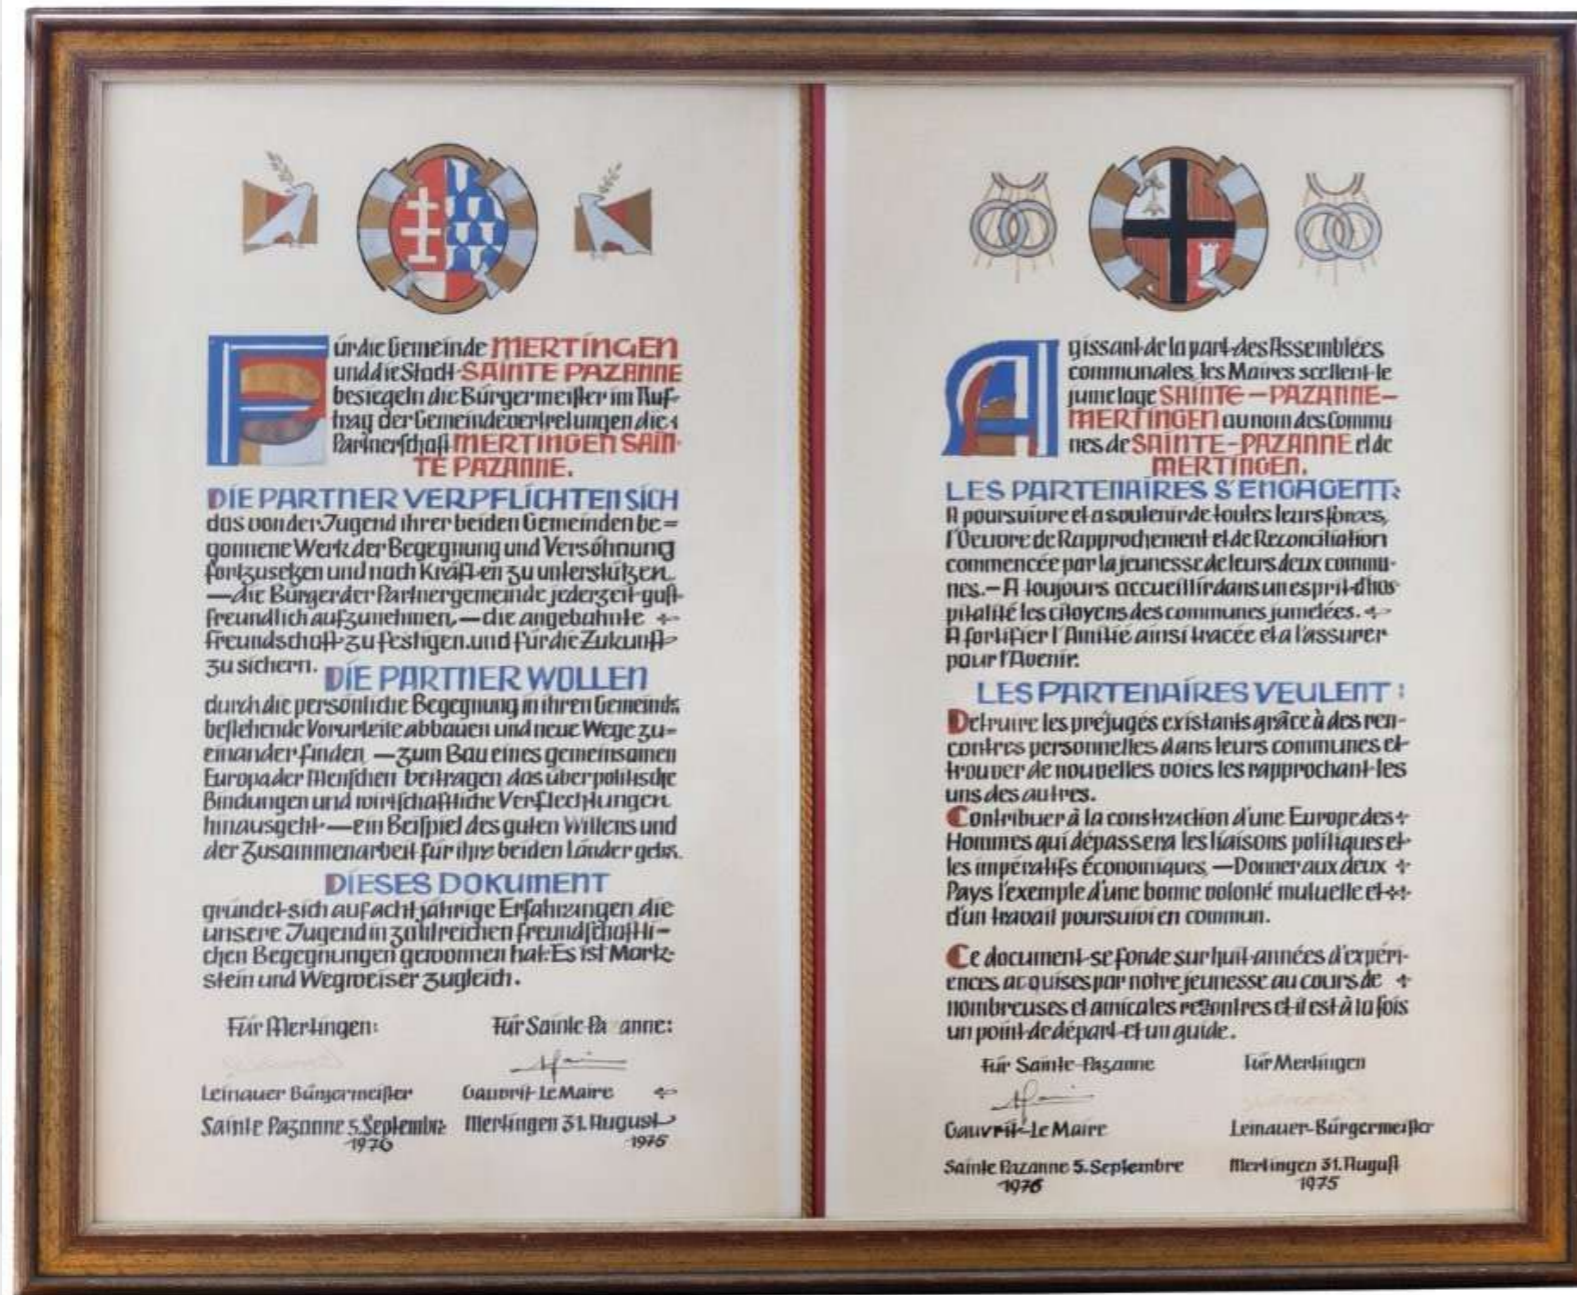 Für die Gemeinde MERTINGEN
und die Stadt SAINTE PAZANNE
besiegeln die Bürgermeister im Auf-
trag der Gemeindevertretungen die
Partnerschaft MERTINGEN SAIN-
TE PAZANNE.
DIE PARTNER VERPFLICHTEN SICH
das von der Jugend ihrer beiden Gemeinden be=
gonnene Werk der Begegnung und Versöhnung
fortzusetzen und nach Kräften zu unterstützen
—die Bürger der Partnergemeinde jederzeit gast-
freundlich aufzunehmen,—die angebahnte
Freundschaft zu festigen.und für die Zukunft
zu sichern.
DIE PARTNER WOLLEN
durch die persönliche Begegnung in ihren Gemeinds
bestehende Vorurteile abbauen und neue Wege zu=
einander finden —zum Bau eines gemeinsamen
Europa der Menschen beitragen das über politische
Bindungen und wirtschaftliche Verflechtungen
hinausgeht—ein Beispiel des guten Willens und
der Zusammenarbeit für ihre beiden Länder gebn.
DIESES DOKUMENT
gründet sich auf acht jährige Erfahrungen die
unsere Jugend in zahlreichen freundschaftli-
chen Begegnungen gewonnen hat. Es ist Mark-
stein und Wegweiser zugleich.
Für Mertingen: Für Sainte Pa anne:
Leinauer Bürgermeister Gauvrit Le Maire
Sainte Pazanne 5.Septembre Mertingen 31.August
1976 1975
Agissant de la part des Assemblées
communales, les Maires scellent le
jumelage SAINTE—PAZANNE—
MERTINGEN au nom des Commu
nes de SAINTE-PAZANNE et de
MERTINGEN.
LES PARTENAIRES S'ENGAGENT:
A poursuivre et a soutenir de toutes leurs forces,
l'Oeuvre de Rapprochement et de Reconciliation
commencée par la jeunesse de leurs deux commu-
nes.—A toujours accueillir dans un esprit d'hos
pitalité les citoyens des communes jumelées.
A fortifier l'Amitié ainsi tracée et a l'assurer
pour l'Avenir.
LES PARTENAIRES VEULENT:
Detruire les préjugés existants grâce à des ren-
contres personnelles dans leurs communes et
trouver de nouvelles voies les rapprochant les
uns des autres.
Contribuer à la construction d'une Europe des
Hommes qui dépassera les liaisons politiques et
les impératifs économiques,—Donner aux deux
Pays l'exemple d'une bonne volonté mutuelle et
d'un travail poursuivi en commun.
Ce document se fonde sur huit années d'expéri-
ences acquises par notre jeunesse au cours de
nombreuses et amicales et il est à la fois
un point de départ et un guide.
Für Sainte-Pazanne Für Mertingen
Gauvrit-Le Maire Leinauer-Bürgermeister
Sainte Pazanne 5.Septembre Mertingen 31.August
1976 1975